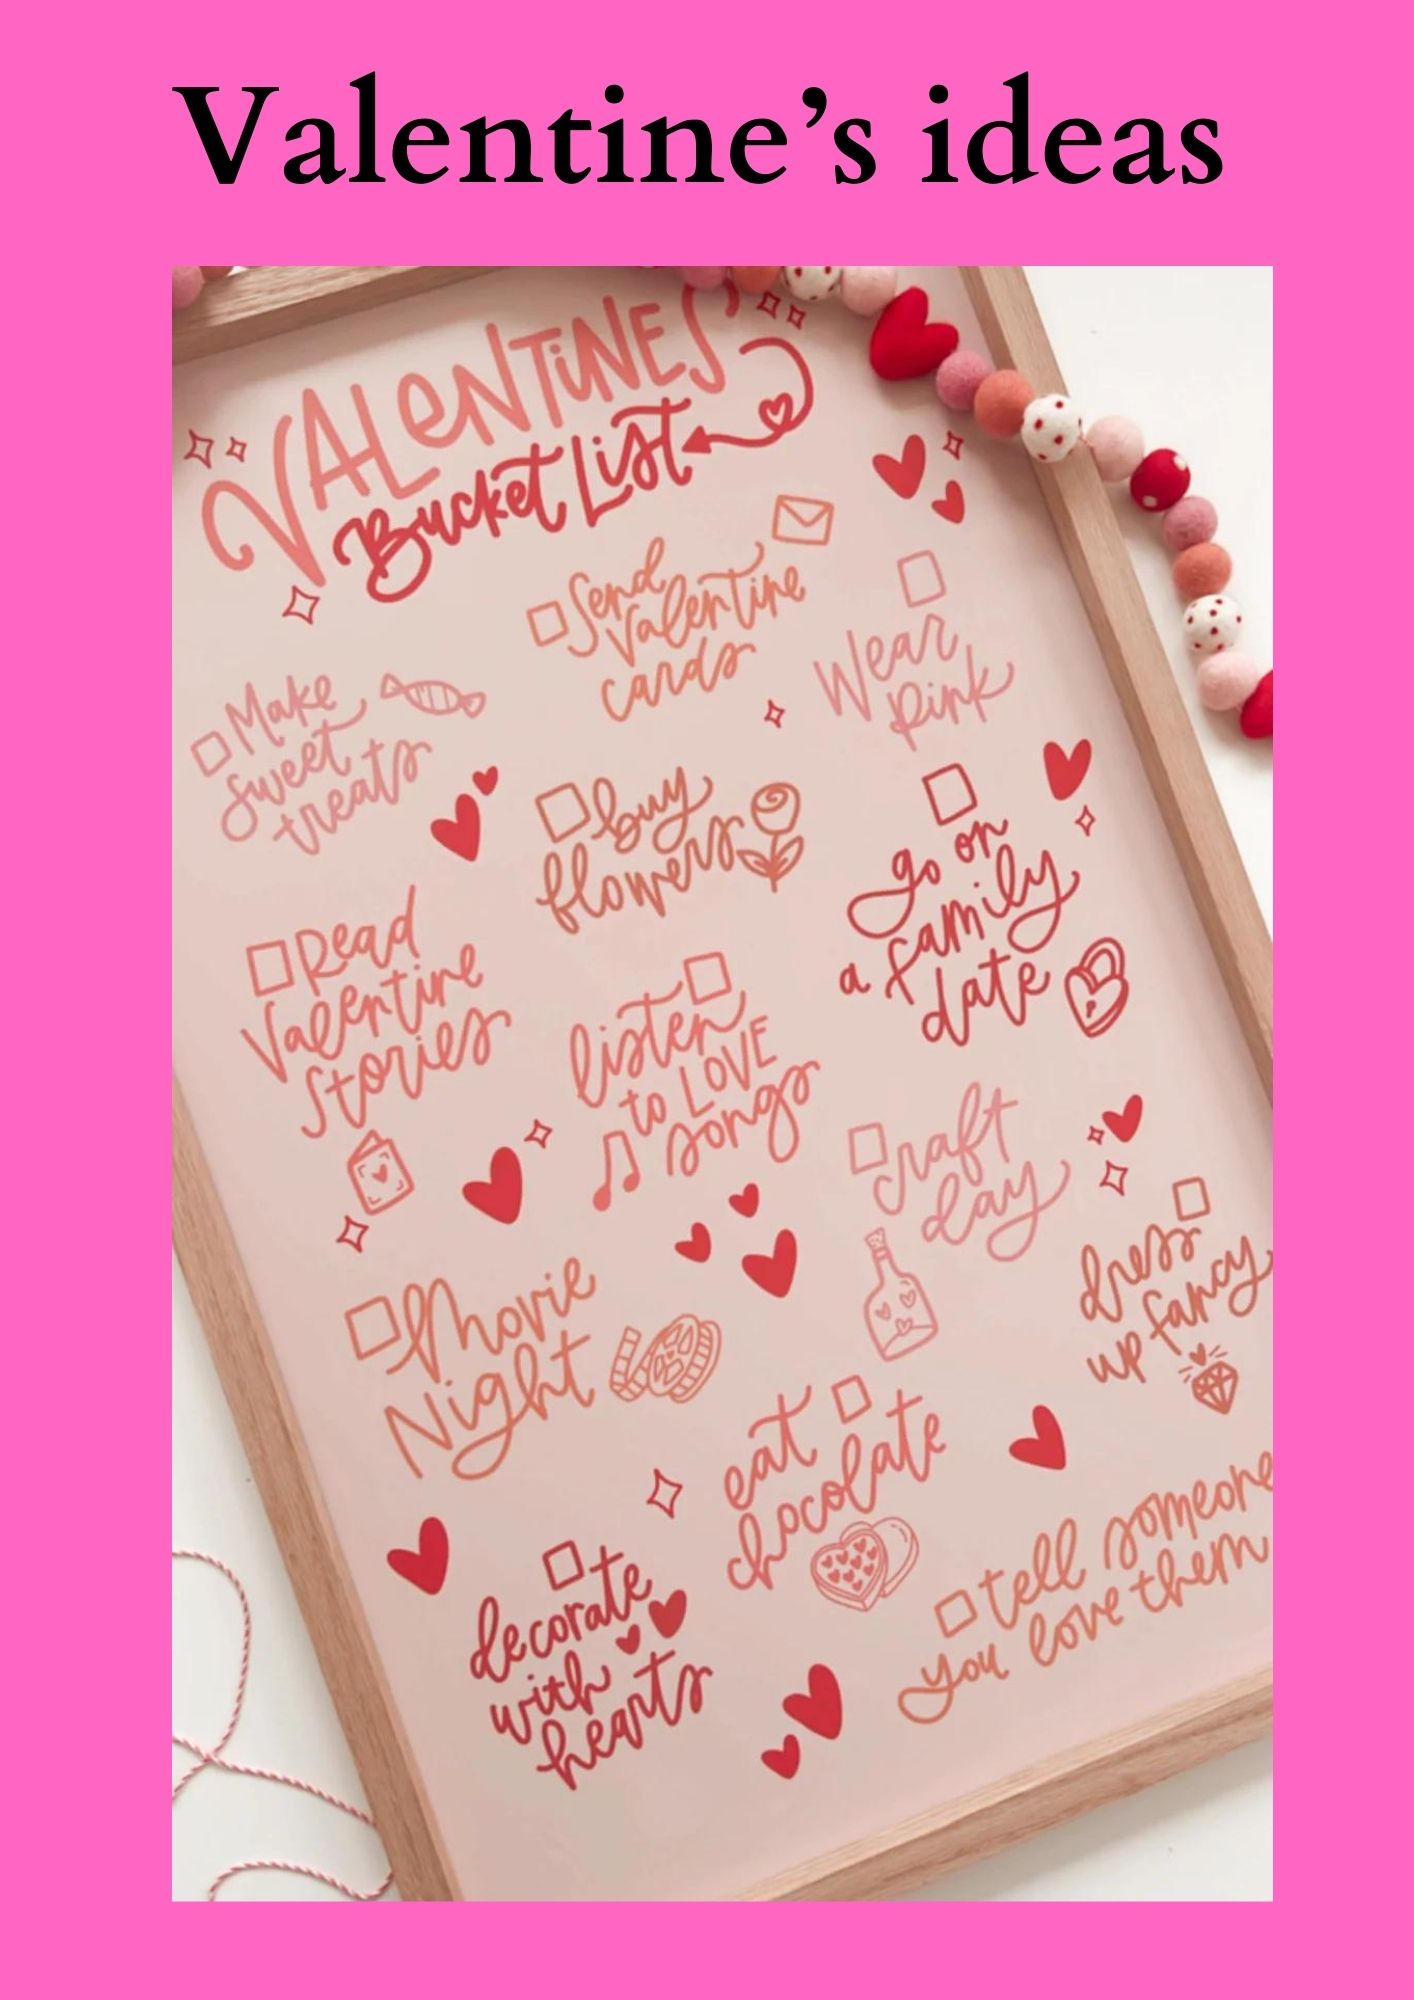 Valentine's ideas
VALENTINES
Bucket List
Send
Valentine
cards
Wear
pink
Make
sweet
treats
buy
flowers
go on
a family
date
Read
Valentine
Stories
listen
to LOVE
songs
craft
day
dress
up fancy
Movie
Night
eat
chocolate
decorate
with
hearts
tell someone
you love them